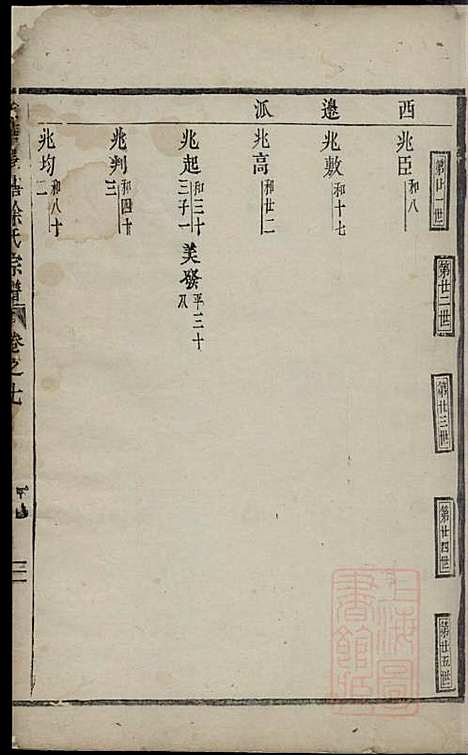 第廿一世
第廿二世
第廿三世
第廿四世
第廿五世
西邉派
兆臣 和八
兆敷 和十七
兆高 和廿二
兆起 和三十三 子一 美發 平三十八
兆判 和四十三
兆均 和八十二
徐氏宗譜 卷之七
上海圖書館藏